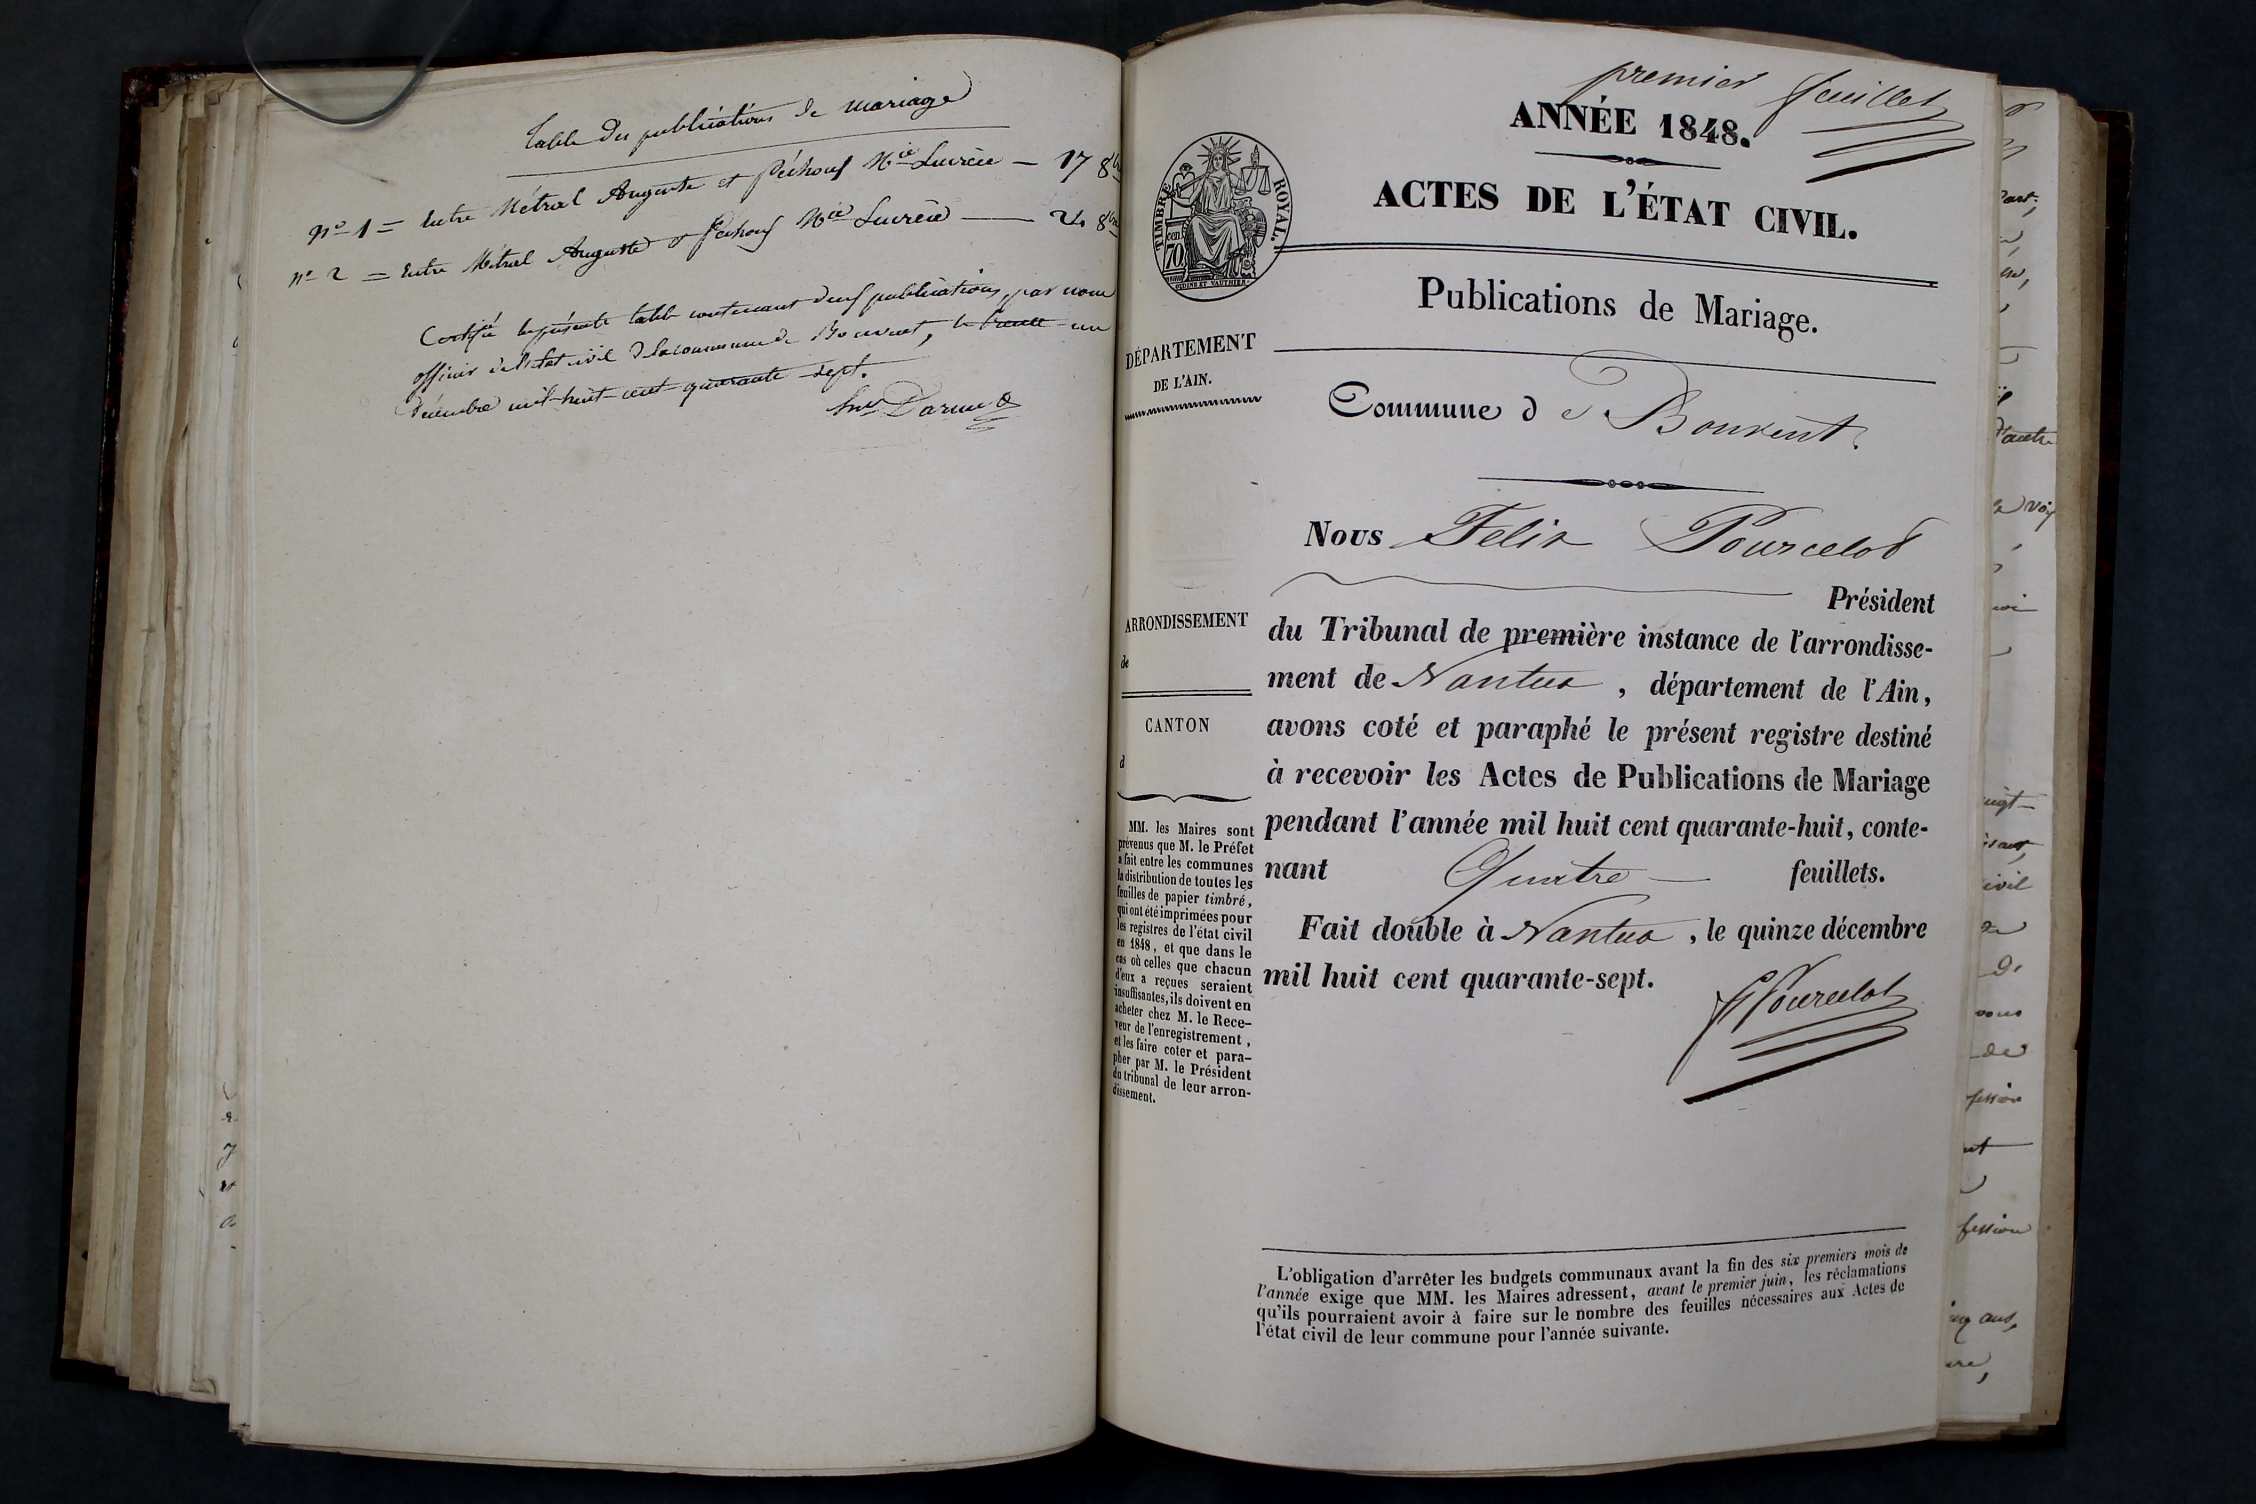 Table des publications de mariage
n° 1 = Entre Métral Auguste et Péchoux Mie Lucrèce — 17 8bre
n° 2 = Entre Métral Auguste et Péchoux Mie Lucrèce — 24 8bre
Certifié la présente table contenant deux publications, par nous
officier de l'état civil de la commune de Bouvent, le trente-un
décembre mil-huit-cent quarante-sept.
premier feuillet
ANNÉE 1848.
ACTES DE L'ÉTAT CIVIL.
TIMBRE ROYAL.
cen. 70
Publications de Mariage.
DÉPARTEMENT
DE L'AIN.
Commune de Bouvent.
Nous Felix Pourcelot
Président
du Tribunal de première instance de l'arrondisse-
ment de Nantua, département de l'Ain,
avons coté et paraphé le présent registre destiné
à recevoir les Actes de Publications de Mariage
pendant l'année mil huit cent quarante-huit, conte-
nant Quatre feuillets.
Fait double à Nantua, le quinze décembre
mil huit cent quarante-sept.
F Pourcelot
ARRONDISSEMENT
de
CANTON
d
MM. les Maires sont
prévenus que M. le Préfet
a fait entre les communes
la distribution de toutes les
feuilles de papier timbré,
qui ont été imprimées pour
les registres de l'état civil
en 1848, et que dans le
cas où celles que chacun
d'eux a reçues seraient
insuffisantes, ils doivent en
acheter chez M. le Rece-
veur de l'enregistrement,
et les faire coter et para-
pher par M. le Président
du tribunal de leur arron-
dissement.
L'obligation d'arrêter les budgets communaux avant la fin des six premiers mois de
l'année exige que MM. les Maires adressent, avant le premier juin, les réclamations
qu'ils pourraient avoir à faire sur le nombre des feuilles nécessaires aux Actes de
l'état civil de leur commune pour l'année suivante.